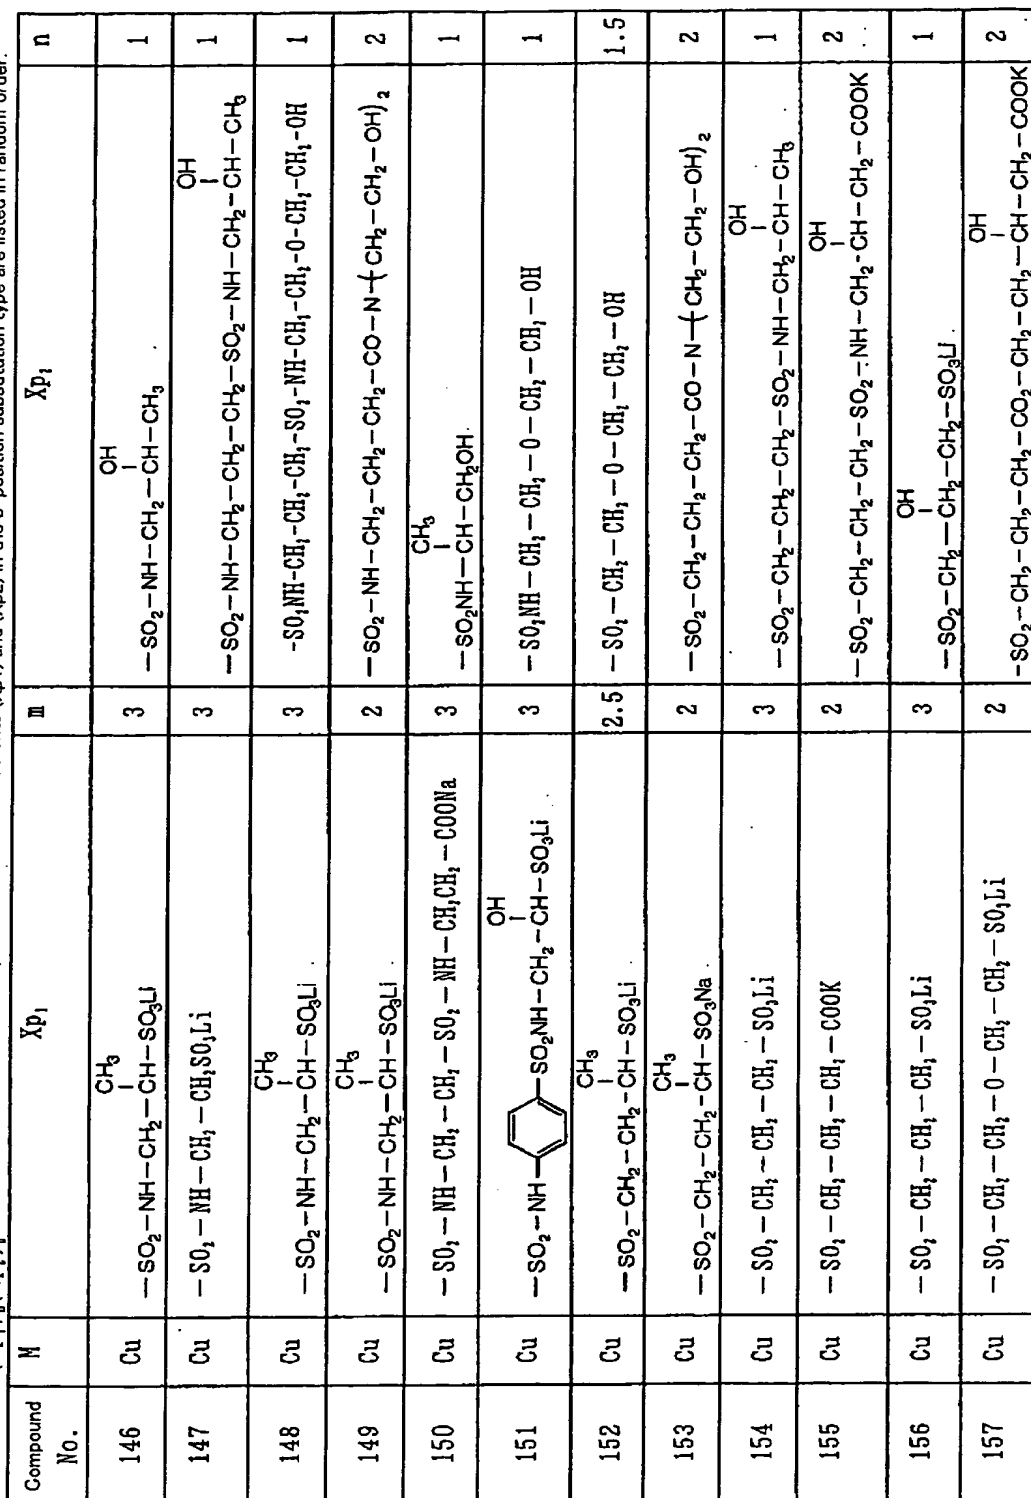 (Xp2) in the B position substitution type are listed in random order.
Compound No. M Xp₁ m Xp₁ n
146 Cu —SO₂—NH—CH₂—CH(CH₃)—SO₃Li 3 —SO₂—NH—CH₂—CH(OH)—CH₃ 1
147 Cu —SO₂—NH—CH₂—CH₂SO₃Li 3 —SO₂—NH—CH₂—CH₂—CH₂—SO₂—NH—CH₂—CH(OH)—CH₃ 1
148 Cu —SO₂—NH—CH₂—CH(CH₃)—SO₃Li 3 -SO₂NH-CH₂-CH₂-CH₂-SO₂-NH-CH₂-CH₂-O-CH₂-CH₂-OH 1
149 Cu —SO₂—NH—CH₂—CH(CH₃)—SO₃Li 2 —SO₂—NH—CH₂—CH₂—CH₂—CO—N—(CH₂—CH₂—OH)₂ 2
150 Cu —SO₂—NH—CH₂—CH₂—SO₂—NH—CH₂CH₂—COONa 3 —SO₂NH—CH(CH₃)—CH₂OH 1
151 Cu —SO₂—NH—⌬—SO₂NH—CH₂—CH(OH)—SO₃Li 3 —SO₂NH—CH₂—CH₂—O—CH₂—CH₂—OH 1
152 Cu —SO₂—CH₂—CH₂—CH(CH₃)—SO₃Li 2.5 —SO₂—CH₂—CH₂—O—CH₂—CH₂—OH 1.5
153 Cu —SO₂—CH₂—CH₂—CH(CH₃)—SO₃Na 2 —SO₂—CH₂—CH₂—CH₂—CO—N—(CH₂—CH₂—OH)₂ 2
154 Cu —SO₂—CH₂—CH₂—CH₂—SO₃Li 3 —SO₂—CH₂—CH₂—CH₂—SO₂—NH—CH₂—CH(OH)—CH₃ 1
155 Cu —SO₂—CH₂—CH₂—CH₂—COOK 2 —SO₂—CH₂—CH₂—CH₂—SO₂—NH—CH₂—CH(OH)—CH₂—COOK 2
156 Cu —SO₂—CH₂—CH₂—CH₂—SO₃Li 3 —SO₂—CH₂—CH(OH)—CH₂—SO₃Li 1
157 Cu —SO₂—CH₂—CH₂—O—CH₂—CH₂—SO₃Li 2 —SO₂—CH₂—CH₂—CH₂—CO₂—CH₂—CH₂—CH(OH)—CH₂—COOK 2